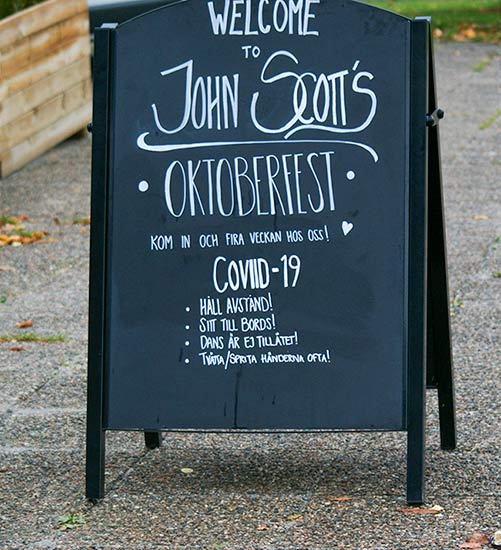 WELCOME
TO
JOHN SCOTT'S
• OKTOBERFEST •
KOM IN OCH FIRA VECKAN HOS OSS!
COVIID-19
• HÅLL AVSTÅND!
• SITT TILL BORDS!
• DANS ÄR EJ TILLÅTET!
• TVÄTTA/SPRITA HÄNDERNA OFTA!